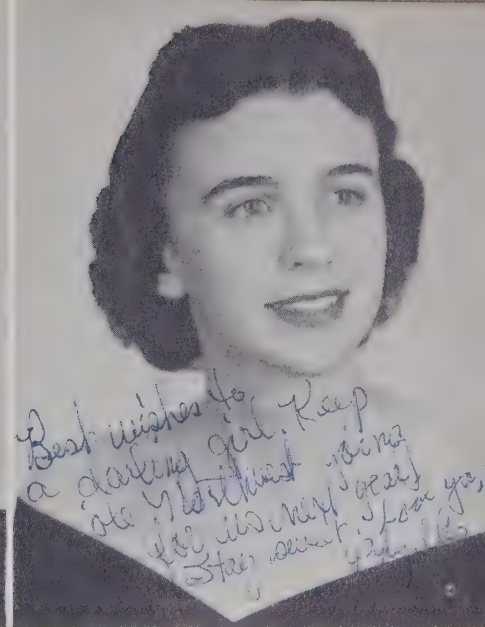 Best wishes to
a darling girl. Keep
ole Northwest going
for us next year
Stay sweet Love ya,